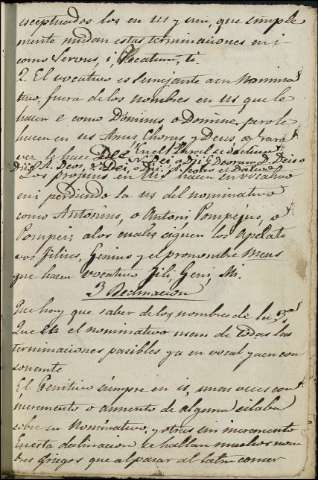 exceptuados los en us y um, que simple
mente mudan estas terminaciones en i
como Servus, i,
2. El vocativo es semejante a su Nomina
tivo, fuera de los nombres en us que lo
hacen e como Dominus o Domine, pero le
hacen en us Agnus Chorus y Deus
vez le hace
Los propios en ius hacen su vocativo
en i perdiendo la us del nominativo
como Antonius, o Antoni Pompejus, o
Pompei; a los cuales siguen los Apelati
vos filius, Genius y el pronombre Meus
que hacen vocativo fili, Geni, Mi.
3ª Declinacion
Que hay que saber de los nombres de la 3ª
Que el nominativo tiene de todas las
terminaciones posibles ya en vocal ya en con
sonante
El Genitivo siempre en is, unas veces con
incremento o aumento de alguna silaba
sobre su Nominativo, y otras sin incremento
En esta declinacion se hallan muchos nom
bres griegos que al pasar al latin conser